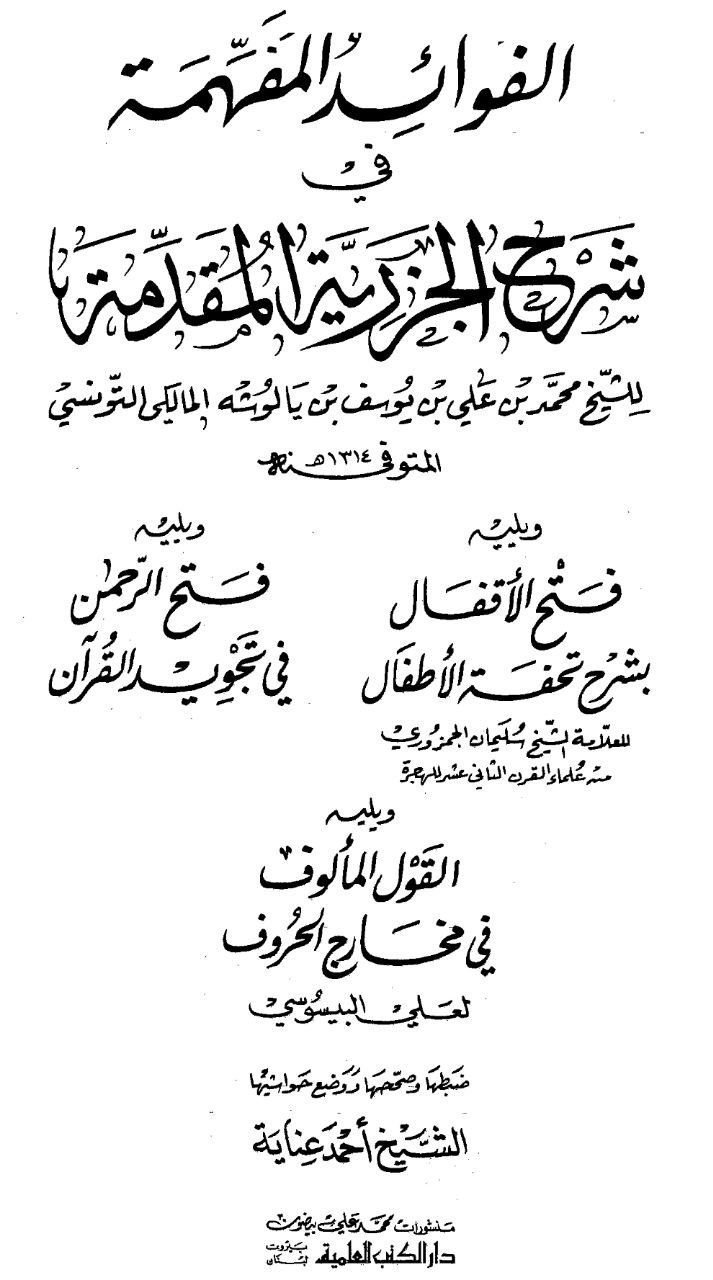 الفوائد المفهّمة
في
شرح الجزريّة المقدّمة
للشّيخ محمّد بن علي بن يوسف بن يالوشه المالكي التونسي
المتوفى سنة ١٣١٤هـ
ويليه
فتح الأقفال
بشرح تحفة الأطفال
للعلّامة الشّيخ سليمان الجمزوري
من علماء القرن الثاني عشر للهجرة
ويليه
فتح الرّحمٰن
في تجويد القرآن
ويليه
القول المألوف
في مخارج الحروف
لعلي البيسوسي
ضبطها وصحّحها ووضع حواشيها
الشّيخ أحمد عناية
منشورات محمد علي بيضون
دار الكتب العلمية
بيروت
لبنان